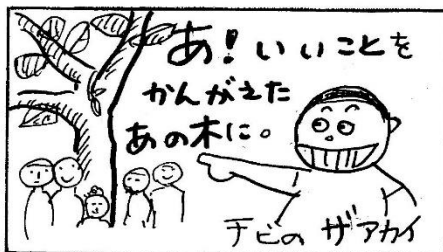 あ!いいことを
かんがえた
あの木に。
チビの ザアカイ